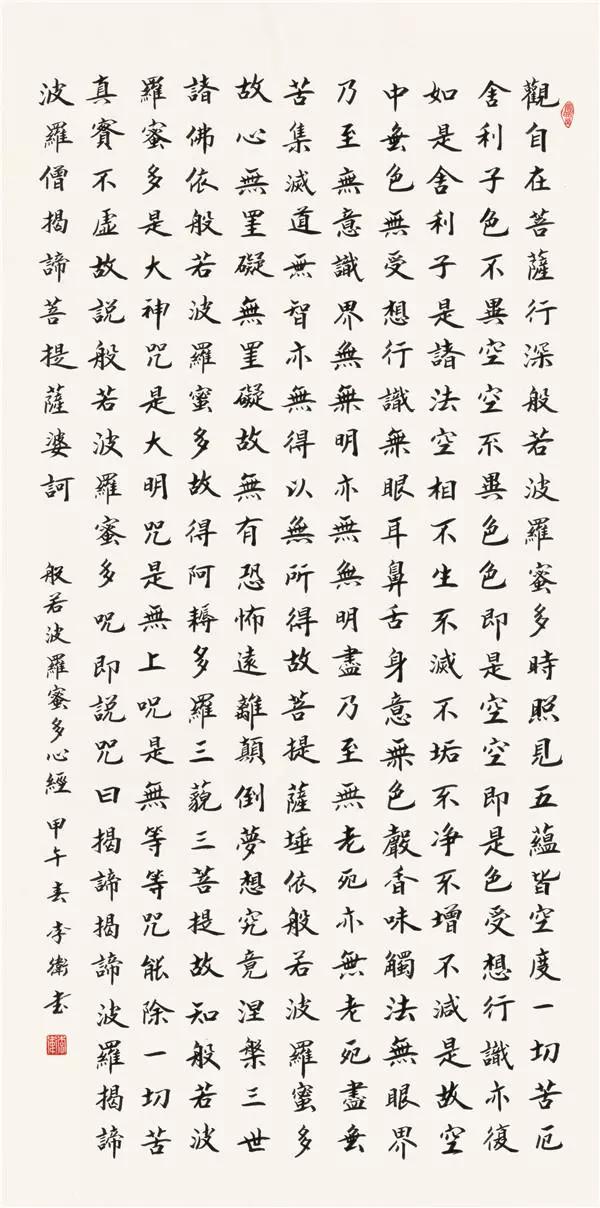 觀自在菩薩行深般若波羅蜜多時照見五蘊皆空度一切苦厄
舍利子色不異空空不異色色即是空空即是色受想行識亦復
如是舍利子是諸法空相不生不滅不垢不净不增不減是故空
中無色無受想行識無眼耳鼻舌身意無色聲香味觸法無眼界
乃至無意識界無無明亦無無明盡乃至無老死亦無老死盡無
苦集滅道無智亦無得以無所得故菩提薩埵依般若波羅蜜多
故心無罣礙無罣礙故無有恐怖遠離顛倒夢想究竟涅槃三世
諸佛依般若波羅蜜多故得阿耨多羅三藐三菩提故知般若波
羅蜜多是大神咒是大明咒是無上咒是無等等咒能除一切苦
真實不虛故說般若波羅蜜多咒即說咒曰揭諦揭諦波羅揭諦
波羅僧揭諦菩提薩婆訶 般若波羅蜜多心經 甲午春李衛書